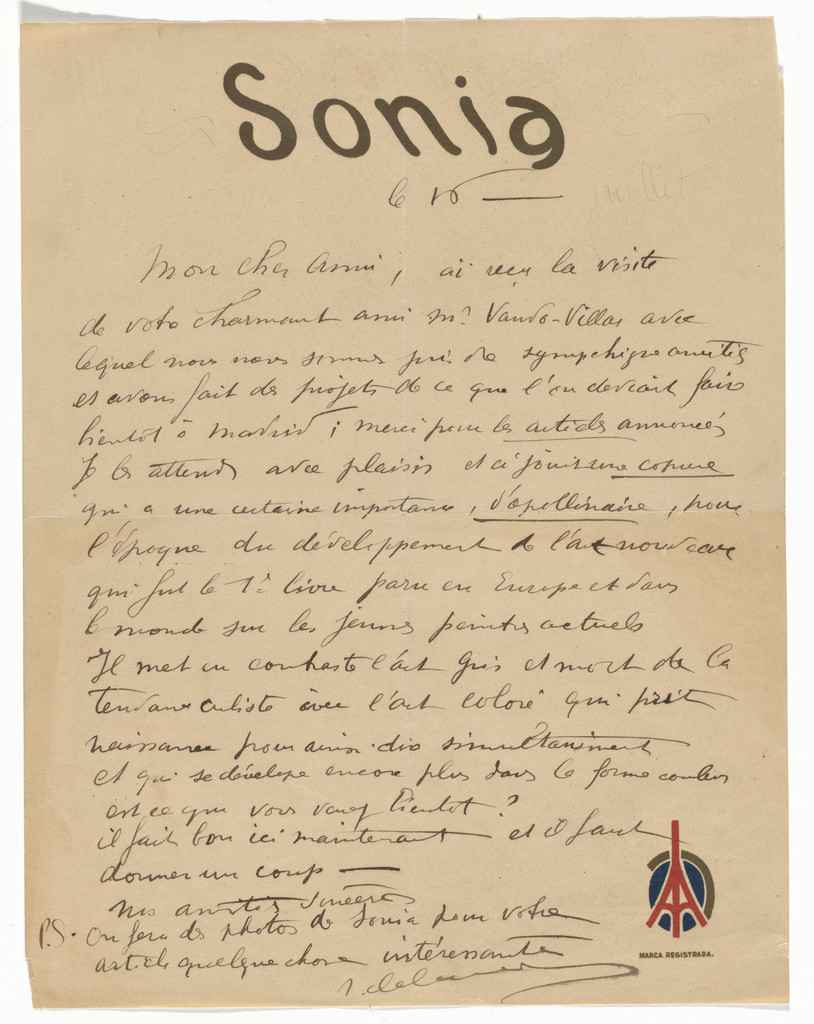 Sonia
le 16 —
Mon cher Ami, ai reçu la visite
de votre charmant ami Mr Vando-Villar avec
lequel nous nous sommes pris de amitiés
et avons fait des projets de ce que l'on devrait faire
bientôt à Madrid ; merci pour les articles annoncés
Je les attends avec plaisir et ci joins une copure
qui a une certaine importance, d'apollinaire, pour
l'époque du développement de l'art nouveau
qui fut le 1er livre paru en Europe et dans
le monde sur les jeunes peintres actuels
Il met en contraste l'art gris et mort de la
tendance cubiste avec l'art coloré qui prit
naissance pour ainsi dire simultanément
et qui se dévelope encore plus dans la forme couleur
est ce que vous venez bientot ?
il fait bon ici maintenant et il faut
donner un coup —
Nos amitiés sincères
P.S. On fera des photos de Sonia pour votre
article quelque chose intéressante
r. delaunay
MARCA REGISTRADA.